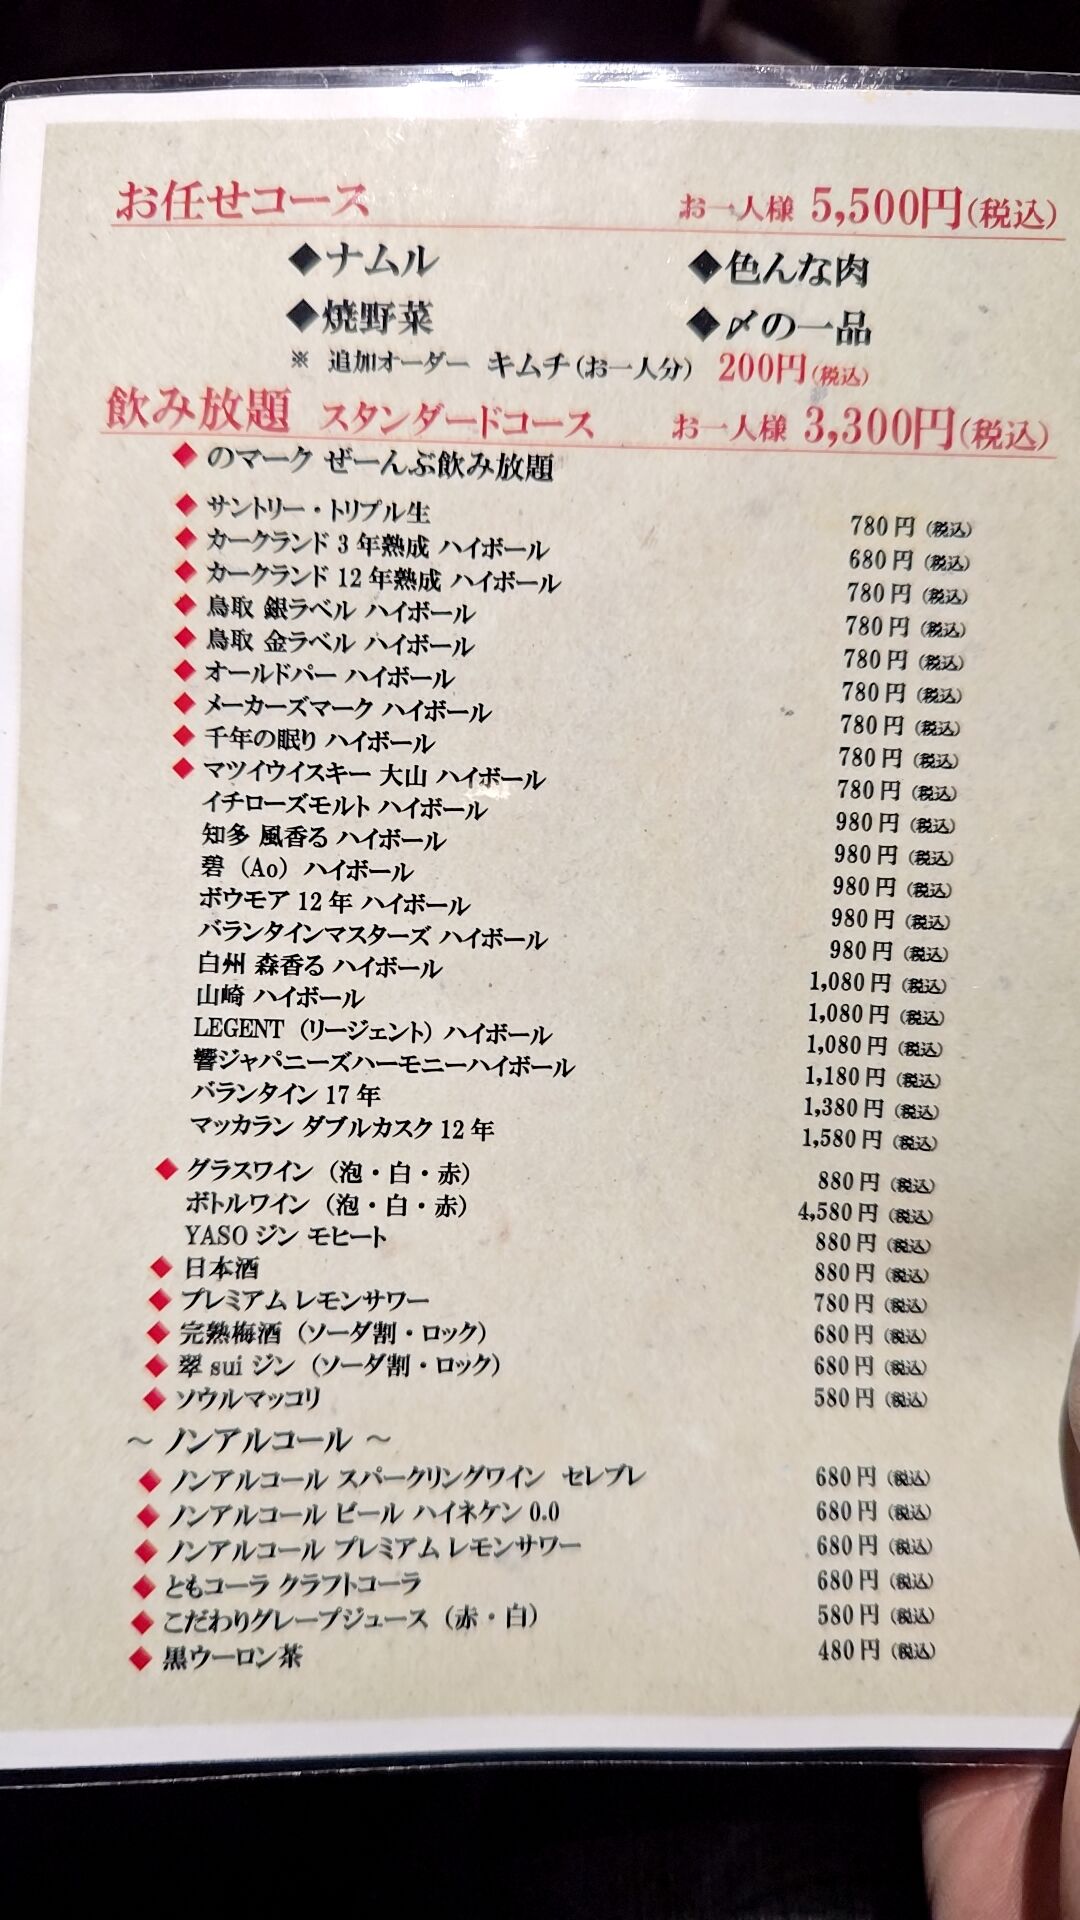 お任せコース お一人様 5,500円(税込)
◆ナムル ◆色んな肉
◆焼野菜 ◆〆の一品
※ 追加オーダー キムチ(お一人分) 200円(税込)
飲み放題 スタンダードコース お一人様 3,300円(税込)
◆ のマーク ぜーんぶ飲み放題
◆ サントリー・トリプル生 780円(税込)
◆ カークランド 3年熟成 ハイボール 680円(税込)
◆ カークランド 12年熟成 ハイボール 780円(税込)
◆ 鳥取 銀ラベル ハイボール 780円(税込)
◆ 鳥取 金ラベル ハイボール 780円(税込)
◆ オールドパー ハイボール 780円(税込)
◆ メーカーズマーク ハイボール 780円(税込)
◆ 千年の眠り ハイボール 780円(税込)
◆ マツイウイスキー 大山 ハイボール 780円(税込)
イチローズモルト ハイボール 980円(税込)
知多 風香る ハイボール 980円(税込)
碧(Ao)ハイボール 980円(税込)
ボウモア 12年 ハイボール 980円(税込)
バランタインマスターズ ハイボール 980円(税込)
白州 森香る ハイボール 1,080円(税込)
山崎 ハイボール 1,080円(税込)
LEGENT(リージェント)ハイボール 1,080円(税込)
響ジャパニーズハーモニーハイボール 1,180円(税込)
バランタイン 17年 1,380円(税込)
マッカラン ダブルカスク 12年 1,580円(税込)
◆ グラスワイン(泡・白・赤) 880円(税込)
ボトルワイン(泡・白・赤) 4,580円(税込)
YASO ジン モヒート 880円(税込)
◆ 日本酒 880円(税込)
◆ プレミアム レモンサワー 780円(税込)
◆ 完熟梅酒(ソーダ割・ロック) 680円(税込)
◆ 翠 sui ジン(ソーダ割・ロック) 680円(税込)
◆ ソウルマッコリ 580円(税込)
～ ノンアルコール ～
◆ ノンアルコール スパークリングワイン セレブレ 680円(税込)
◆ ノンアルコール ビール ハイネケン 0.0 680円(税込)
◆ ノンアルコール プレミアム レモンサワー 680円(税込)
◆ ともコーラ クラフトコーラ 680円(税込)
◆ こだわりグレープジュース(赤・白) 580円(税込)
◆ 黒ウーロン茶 480円(税込)